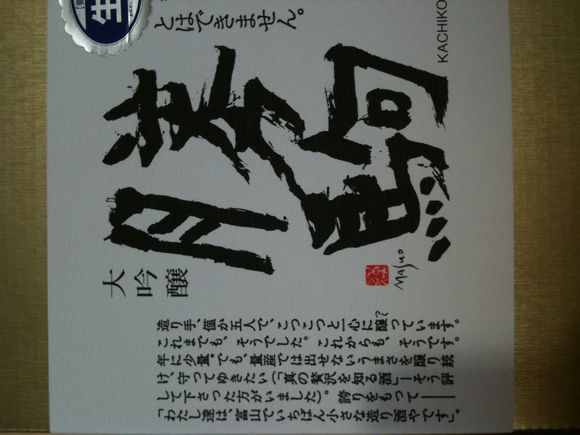 生
とはできません。
KACHIKO
勝駒
大吟醸
Masuo
造り手、僅か五人で、こつこつと一心に醸っています。
これまでも、そうでした。これからも、そうです。
年に少量でも、量産では出せないうまさを醸り続
け、守ってゆきたい(「真の贅沢を知る酒」―そう評
して下さった方がいました)。誇りをもって――
「わたし達は、富山でいちばん小さな造り酒やです」。